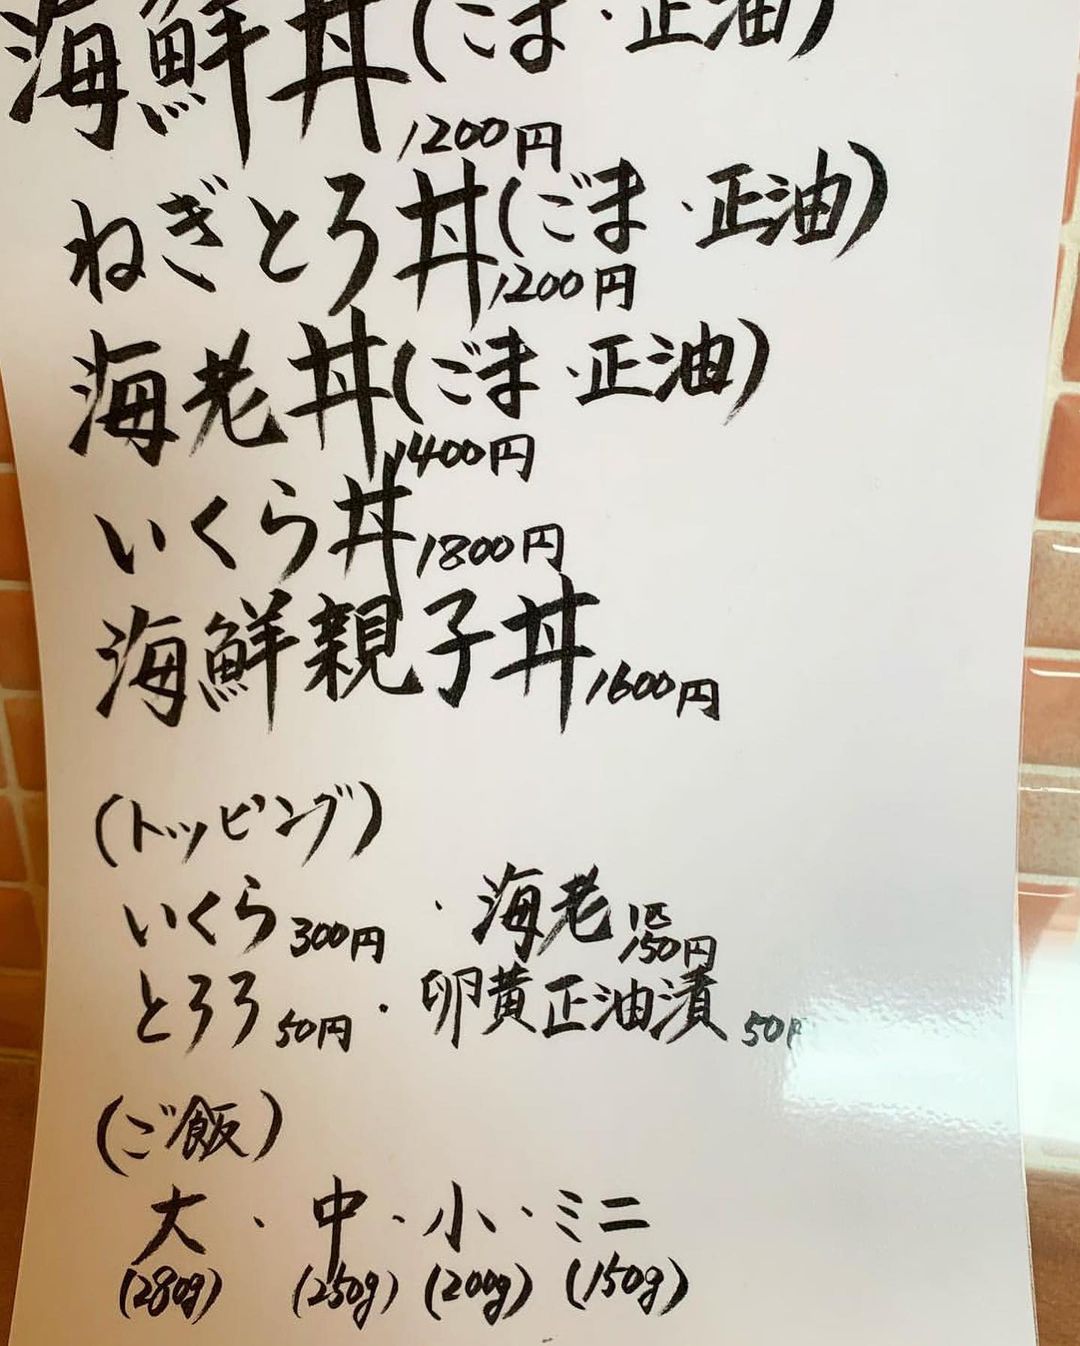 海鮮丼(ごま・正油)
1200円
ねぎとろ丼(ごま・正油)
1200円
海老丼(ごま・正油)
1400円
いくら丼 1800円
海鮮親子丼 1600円
(トッピング)
いくら 300円 ・ 海老 1匹 150円
とろろ 50円 ・ 卵黄正油漬 50円
(ご飯)
大・中・小・ミニ
(280g) (250g) (200g) (150g)